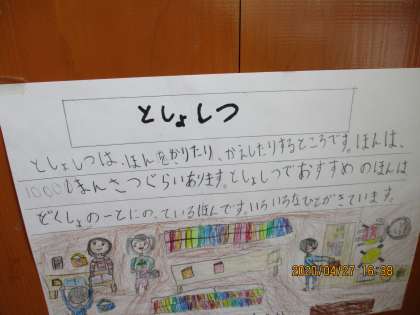 としょしつ
としょしつは、ほんをかりたり、かえしたりするところです。ほんは、
10000まんさつぐらいあります。としょしつでおすすめのほんは
どくしょのーとにのっているほんです。いろいろなひとがきています。
2020/04/27 16:38